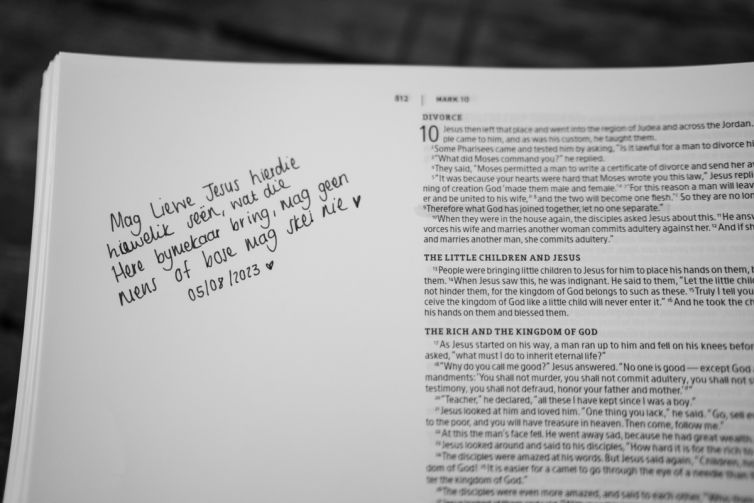 Mag Liewe Jesus hierdie
huwelik seën, wat die
Here bymekaar bring, mag geen
mens of bose mag skei nie ♥
05/08/2023 ♥
812 | MARK 10
DIVORCE
10 Jesus then left that place and went into the region of Judea and across the Jordan.
ple came to him, and as was his custom, he taught them.
²Some Pharisees came and tested him by asking, "Is it lawful for a man to divorce hi
³"What did Moses command you?" he replied.
⁴They said, "Moses permitted a man to write a certificate of divorce and send her a
⁵"It was because your hearts were hard that Moses wrote you this law," Jesus repli
ning of creation God 'made them male and female.' ⁷'For this reason a man will leav
er and be united to his wife, ⁸and the two will become one flesh.' So they are no lon
⁹Therefore what God has joined together, let no one separate."
¹⁰When they were in the house again, the disciples asked Jesus about this. ¹¹He answ
vorces his wife and marries another woman commits adultery against her. ¹²And if sh
and marries another man, she commits adultery."
THE LITTLE CHILDREN AND JESUS
¹³People were bringing little children to Jesus for him to place his hands on them, b
them. ¹⁴When Jesus saw this, he was indignant. He said to them, "Let the little chil
not hinder them, for the kingdom of God belongs to such as these. ¹⁵Truly I tell you
ceive the kingdom of God like a little child will never enter it." ¹⁶And he took the ch
his hands on them and blessed them.
THE RICH AND THE KINGDOM OF GOD
¹⁷As Jesus started on his way, a man ran up to him and fell on his knees befor
asked, "what must I do to inherit eternal life?"
¹⁸"Why do you call me good?" Jesus answered. "No one is good — except God
mandments: 'You shall not murder, you shall not commit adultery, you shall not s
testimony, you shall not defraud, honor your father and mother.'"
²⁰"Teacher," he declared, "all these I have kept since I was a boy."
²¹Jesus looked at him and loved him. "One thing you lack," he said. "Go, sell e
to the poor, and you will have treasure in heaven. Then come, follow me."
²²At this the man's face fell. He went away sad, because he had great wealth.
²³Jesus looked around and said to his disciples, "How hard it is for the rich to
²⁴The disciples were amazed at his words. But Jesus said again, "Children, ho
dom of God! ²⁵It is easier for a camel to go through the eye of a needle than
ter the kingdom of God."
²⁶The disciples were even more amazed, and said to each other, "Who